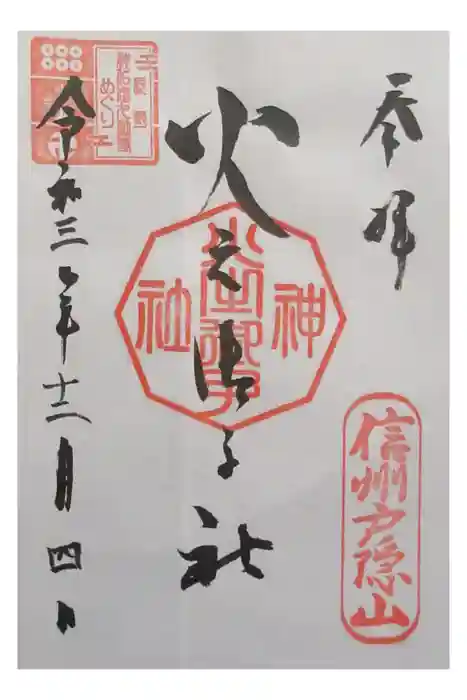 奉拝
信州戸隠山
火之御子社
神社
令和三年十二月四日
めぐり